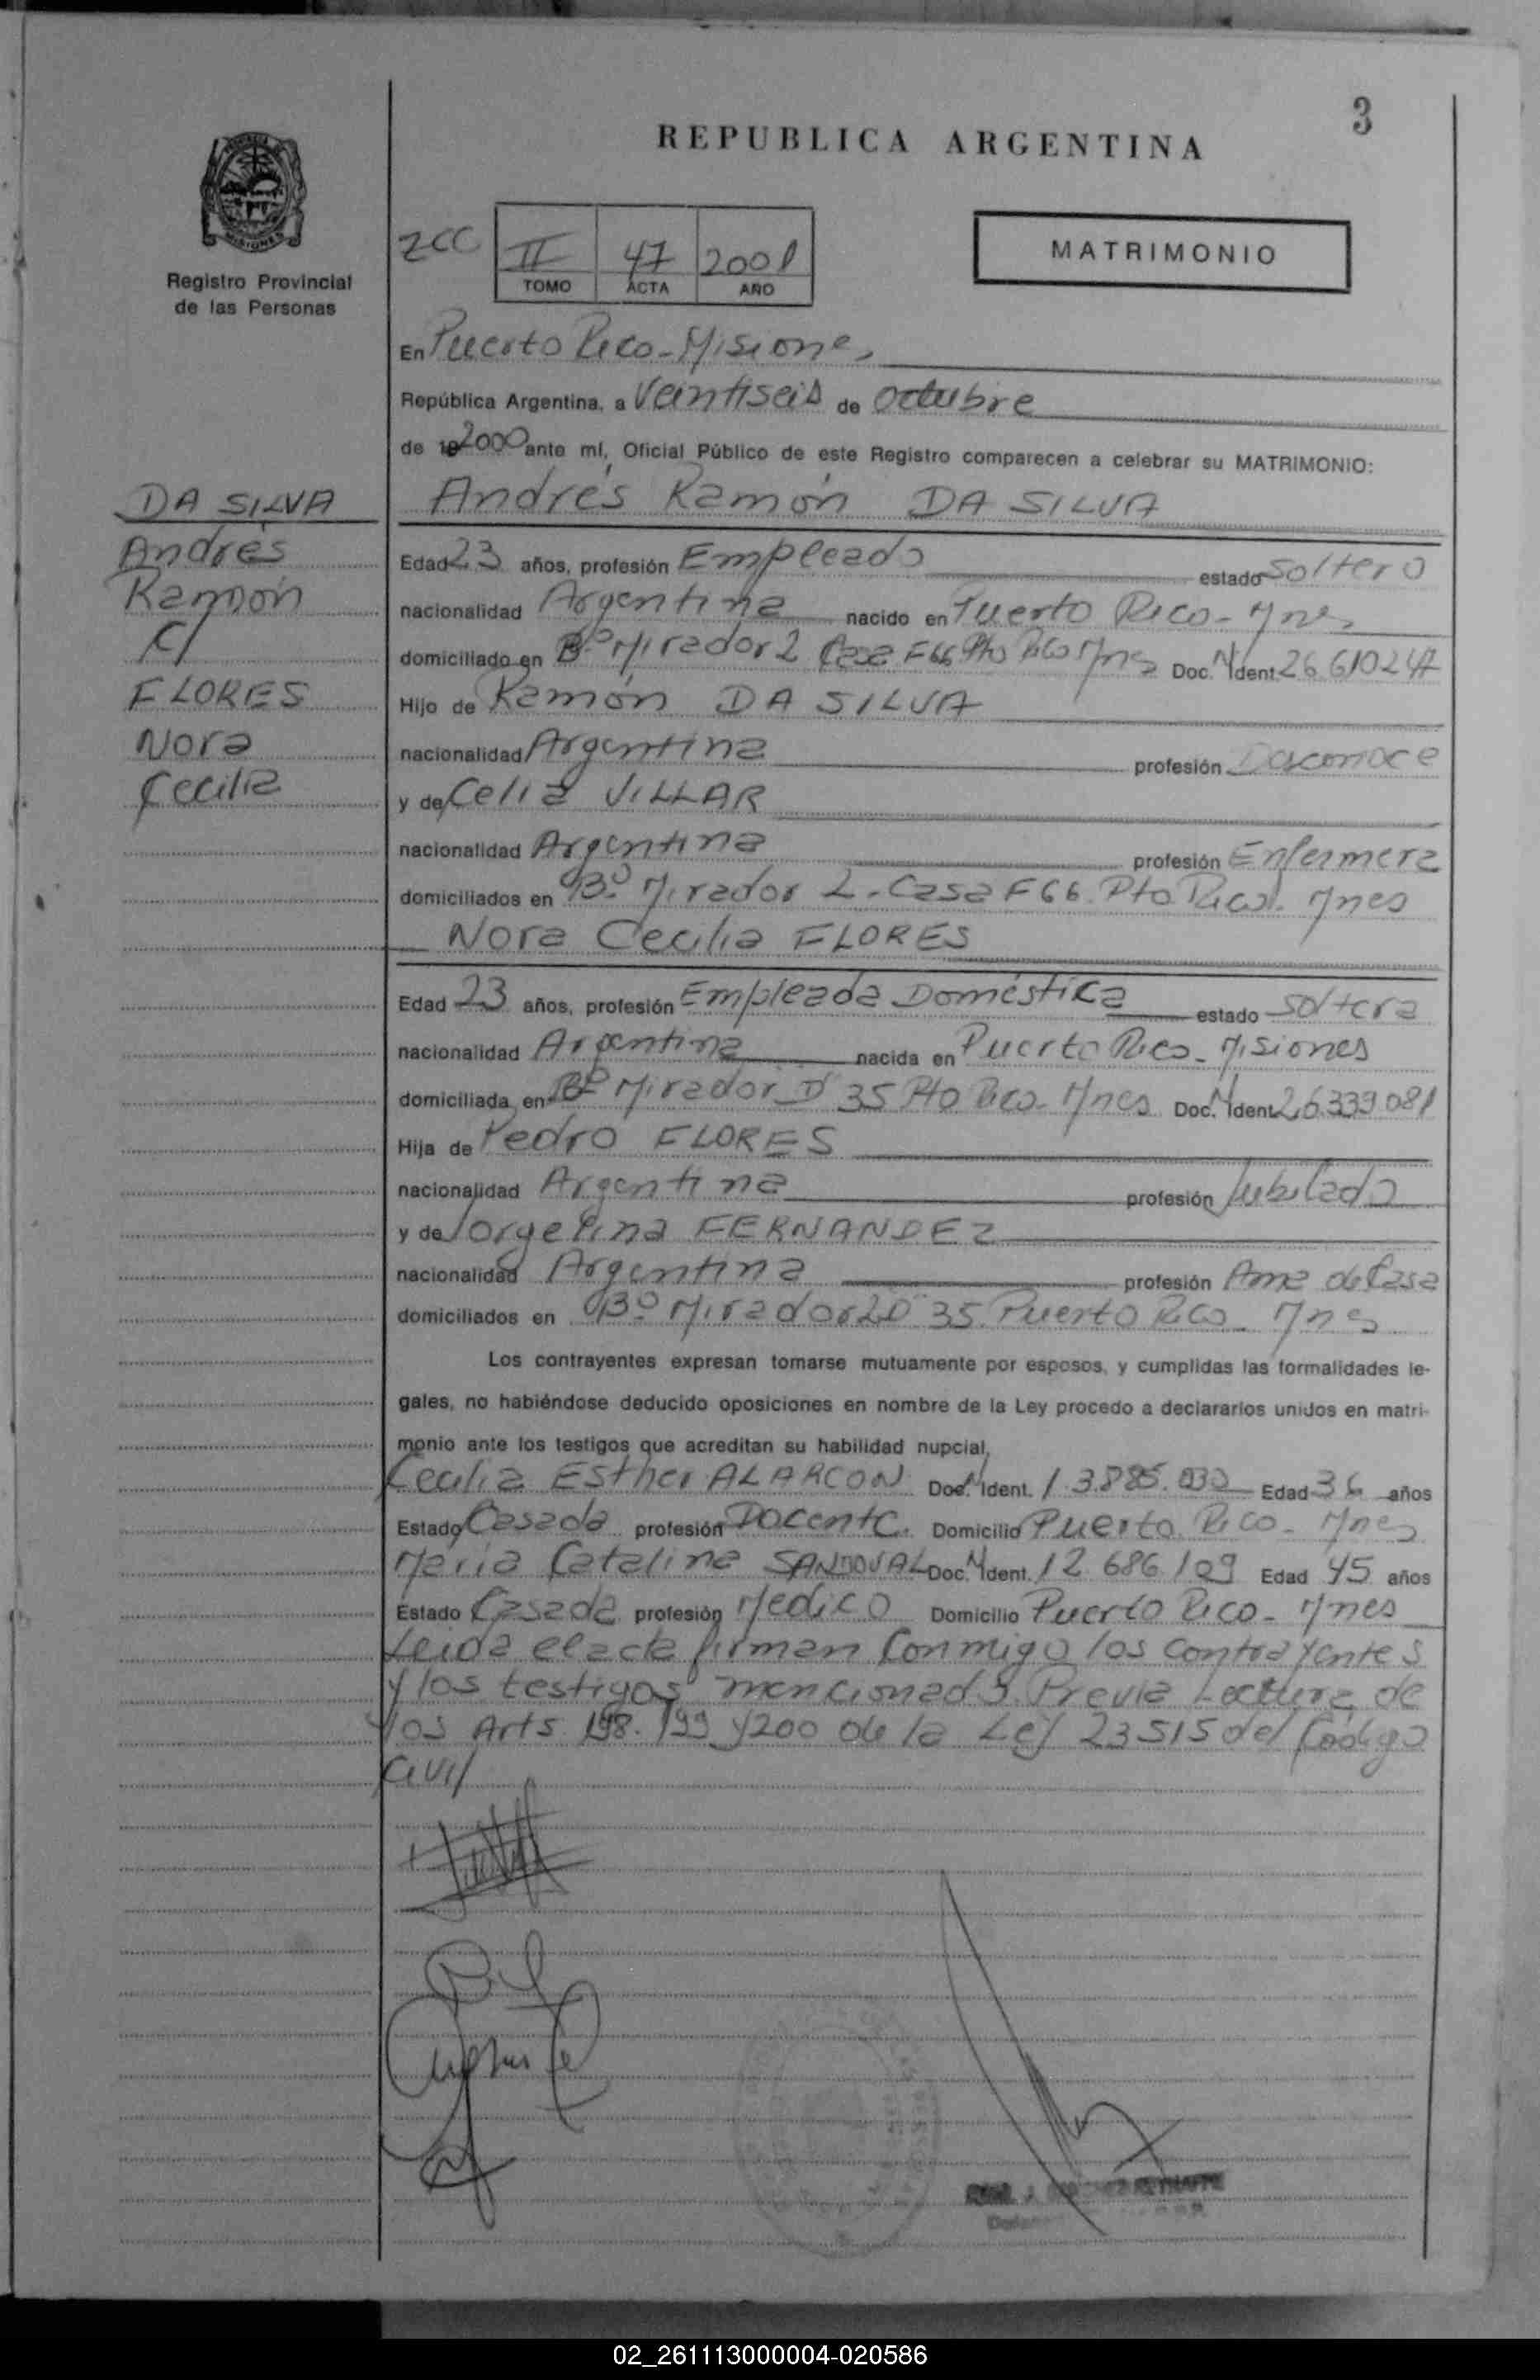 3
REPUBLICA ARGENTINA
MISIONES
Registro Provincial
de las Personas
ZCC II 47 2000
TOMO ACTA AÑO
MATRIMONIO
En Puerto Rico - Misiones
República Argentina, a Veintiseis de octubre
de 19 2000 ante mí, Oficial Público de este Registro comparecen a celebrar su MATRIMONIO:
DA SILVA
Andrés
Ramón
C/
FLORES
Nora
Cecilia
Andrés Ramón DA SILVA
Edad 23 años, profesión Empleado estado Soltero
nacionalidad Argentina nacido en Puerto Rico - Mnes
domiciliado en Bº Mirador 2 Casa F66 Pto Rico Mnes Doc. N Ident. 26.610247
Hijo de Ramón DA SILVA
nacionalidad Argentina profesión Desconoce
y de Celia VILLAR
nacionalidad Argentina profesión Enfermera
domiciliados en Bº Mirador 2 - Casa F66. Pto Rico. Mnes
Nora Cecilia FLORES
Edad 23 años, profesión Empleada Doméstica estado Soltera
nacionalidad Argentina nacida en Puerto Rico - Misiones
domiciliada en Bº Mirador D 35 Pto Rico - Mnes Doc. N Ident. 26.339.081
Hija de Pedro FLORES
nacionalidad Argentina profesión Jubilado
y de Jorgelina FERNANDEZ
nacionalidad Argentina profesión Ama de Casa
domiciliados en Bº Mirador 2 D 35. Puerto Rico - Mnes
Los contrayentes expresan tomarse mutuamente por esposos, y cumplidas las formalidades le-
gales, no habiéndose deducido oposiciones en nombre de la Ley procedo a declararlos unidos en matri-
monio ante los testigos que acreditan su habilidad nupcial,
Cecilia Esther ALARCON Doc. N Ident. 13.885.030 Edad 36 años
Estado Casada profesión Docente. Domicilio Puerto Rico - Mnes
Maria Catalina SANDOVAL Doc. N Ident. 12.686.109 Edad 45 años
Estado Casada profesión Medico Domicilio Puerto Rico - Mnes
Leida el acta firman Conmigo los contrayentes
y los testigos mencionados. Previa Lectura de
los Arts 198. 199 y 200 de la Ley 23515 del Código
Civil
02_261113000004-020586